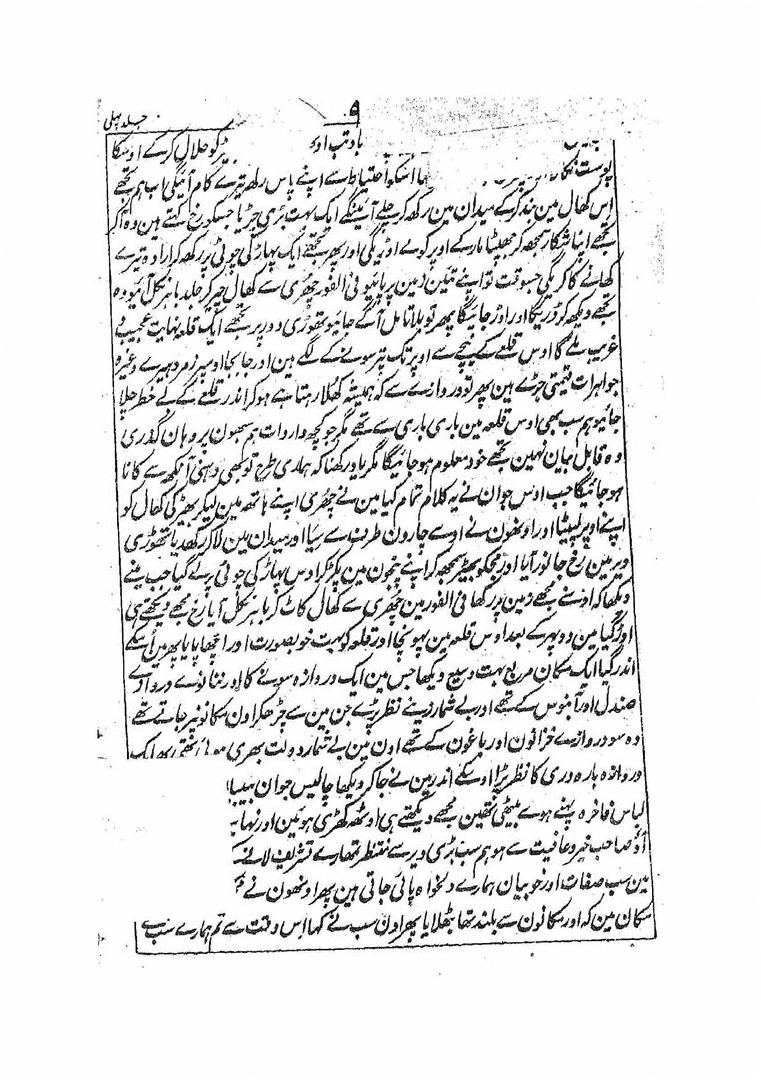 جلد پہلی
بھیڑ کو حلال کر کے اوسکا
پوست نکال اسکو احتیاط سے اپنے پاس رکھ تیرے کام آئیگی اب ہم تجھے
اس کھال مین بند کر کے میدان مین رکھ کر چلے آئینگے ایک بہت بڑی چڑیا جسکو رخ کہتے ہین وہ آ کر
تجھے اپنا شکار سمجھ کر جھپٹا مار کے اوپر کو لے اوڑیگی اور پھر تجھے ایک پہاڑ کی چوٹی پر رکھ کر ارادہ تیرے
کھانے کا کریگی جسوقت تو اپنے تئین زمین پر پائیو فی الفور چھری سے کھال چیر کر جلد باہر نکل آئیو وہ
تجھے دیکھ کر ڈریگا اور اوڑ جائیگا پھر تو بلا تامل آگے جائیو تھوڑی دور پر تجھے ایک قلعہ نہایت عجیب و
غریب ملے گا اوس قلعے کے نیچے سے اوپر تک پتر سونے کے لگے ہین اور جا بجا اوسپر زمرد ہیرے وغیرہ
جواہرات قیمتی جڑے ہین پھر تو دروازے سے کہ ہمیشہ کھلا رہتا ہے ہو کر اندر قلعے کے بے خطر چلا
جائیو ہم سب بھی اوس قلعہ مین باری باری سے تھے مگر جو کچھ واردات ہم سبھون پر وہان گذری
وہ قابل بیان نہین تجھے خود معلوم ہو جائیگا مگر یاد رکھنا کہ ہماری طرح تو بھی دہنی آنکھ سے کانا
ہو جائیگا جب اوس جوان نے یہ کلام تمام کیا مین نے چھری اپنے ہاتھ مین لیکر بھیڑ کی کھال کو
اپنے اوپر لپیٹا اور اونھون نے اوسے چارون طرف سے سیا اور میدان مین لا کر رکھدیا تھوڑی
دیر مین رخ جانور آیا اور مجکو بھیڑ سمجھ کر اپنے پنجون مین پکڑ کر اوس پہاڑ کی چوٹی پر لے گیا جب مینے
دیکھا کہ اوسنے مجھے زمین پر رکھا فی الفور مین چھری سے کھال کاٹ کر باہر نکل آیا رخ مجھے دیکھتے ہی
اوڑ گیا مین دوپہر کے بعد اوس قلعہ مین پہونچا اور قلعہ کو بہت خوبصورت اور اچھا پایا پھر مین اُسکے
اندر گیا ایک مکان مربع بہت وسیع دیکھا جس مین ایک دروازہ سونے کا اور ننانوے دروازے
صندل اور آبنوس کے تھے اور بے شمار زینے نظر پڑے جن مین سے چڑھکر اون مکانونپر جاتے تھے
وہ سو دروازے خزانون اور باغون کے تھے اون مین بے شمار دولت بھری ہوئی تھی پھر ایک
دروازہ بارہ دری کا نظر پڑا اوسکے اندر مین نے جا کر دیکھا چالیس جوان
لباس فاخرہ پہنے ہوے بیٹھی تھین مجھے دیکھتے ہی اوٹھ کھڑی ہوئین اور
آؤ صاحب خیر و عافیت سے ہو ہم سب بڑی دیر سے منتظر تمھارے تشریف لانے کے
مین سب صفات اور خوبیان ہمارے دلخواہ پائی جاتی ہین پھر اونھون نے
مکان مین کہ اور مکانون سے بلند تھا بٹھلایا پھر اون سب نے کہا اس وقت سے تم ہمارے سب کے